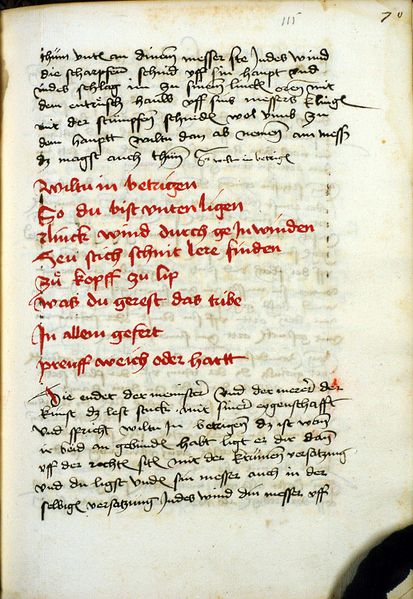 115
70
thún vntv an dinem messer ste Indes wind
die scharpfen schnid vff sin haupt vnd
Indes schlag im zu sinem linck oren mit
dem entrisch hauw vff sins messers kling
mit der stumpfen schnide vnd zu
dem hauptt wiltu dan ab nemen am mess
dz magst auch thún wiltu in betrigen
wiltu in betrigen
So du bist vnten ligen
Linck wind durch ge In winden
Heu stich schnit lere finden
zů kopff zu lip
was du gerest das tribe
In allem gefert
preuff weich oder hartt
Hie endet der meinster vnd der merer der
kunst dz lest stuck mit siner eygenschafft
vnd spricht wiltu In betrigen dz ist wan
ie vnd an gebunden habt ligt er dir dan
vff der rechte sitt mit der krumen versatzung
vnd du ligst vnder sin messer auch in der
selbigen versatzung Indes wind din messer vff